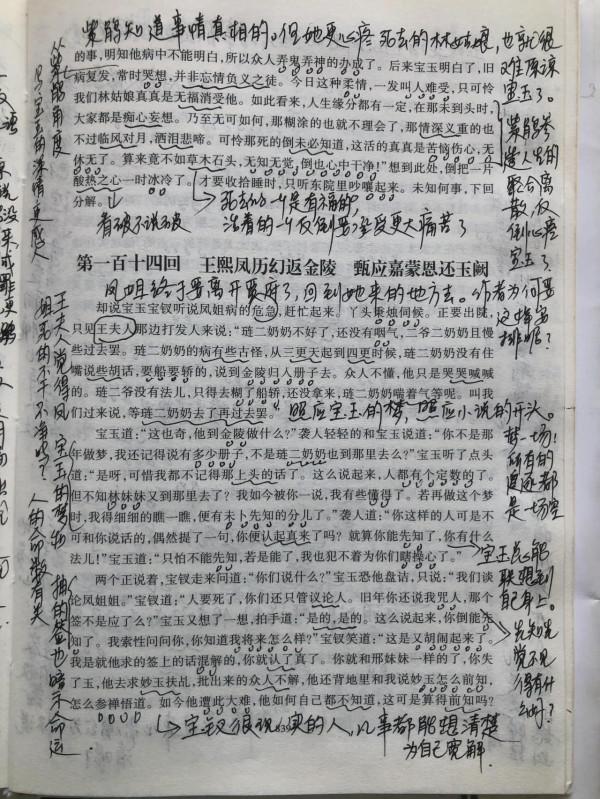 紫鹃知道事情真相的。但她更心疼死去的林姑娘,也就很
难原谅
宝玉了。
的事,明知他病中不能明白,所以众人弄鬼弄神的办成了。后来宝玉明白了,旧
病复发,常时哭想,并非忘情负义之徒。今日这种柔情,一发叫人难受,只可怜
我们林姑娘真真是无福消受他。如此看来,人生缘分都有一定,在那未到头时,
大家都是痴心妄想。乃至无可如何,那糊涂的也就不理会了,那情深义重的也
不过临风对月,洒泪悲啼。可怜那死的倒未必知道,这活的真真是苦恼伤心,无
休无了。算来竟不如草木石头,无知无觉,倒也心中干净!”想到此处,倒把一片
酸热之心一时冰冷了。才要收拾睡时,只听东院里吵嚷起来。未知何事,下回
分解。
从紫鹃角度
紫鹃参
聚合离
散,反
倒心疼
宝玉了。
看破不说破
死去的一个是有福的,
活着的一个反倒要承受更大痛苦了
第一百十四回 王熙凤历幻返金陵 甄应嘉蒙恩还玉阙
凤姐终于要离开贾府了,回到她来的地方去。作者为何要
这样安
排呢?
却说宝玉宝钗听说凤姐病的危急,赶忙起来。丫头秉烛伺候。正要出院,
只见王夫人那边打发人来说:“琏二奶奶不好了,还没有咽气,二爷二奶奶且慢
些过去罢。琏二奶奶的病有些古怪,从三更天起到四更时候,琏二奶奶没有住
嘴说些胡话,要船要轿的,说到金陵归入册子去。众人不懂,他只是哭哭喊喊
的。琏二爷没有法儿,只得去糊了船轿,还没拿来,琏二奶奶喘着气等呢。叫我
们过来说,等琏二奶奶去了再过去罢。”
照应宝玉的梦,照应小说的开头。
梦一场!
所有的
追逐都
是一场空
宝玉道:“这也奇,他到金陵做什么?”袭人轻轻的和宝玉说道:“你不是那
年做梦,我还记得说有多少册子,不是琏二奶奶也到那里去么?”宝玉听了点头
道:“是呀,可惜我都不记得那上头的话了。这么说起来,人都有个定数的了。
但不知林妹妹又到那里去了?我如今被你一说,我有些懂得了。若再做这个梦
时,我得细细的瞧一瞧,便有未卜先知的分儿了。”袭人道:“你这样的人可是不
可和你说话的,偶然提了一句,你便认起真来了吗?就算你能先知了,你有什么
法儿!”宝玉道:“只怕不能先知,若是能了,我也犯不着为你们瞎操心了。”
宝玉总能
联想到
自己身上。
两个正说着,宝钗走来问道:“你们说什么?”宝玉恐他盘诘,只说:“我们谈
论凤姐姐。”宝钗道:“人要死了,你们还只管议论人。旧年你还说我咒人,那个
签不是应了么?”宝玉又想了一想,拍手道:“是的,是的。这么说起来,你倒能先
知了。我索性问问你,你知道我将来怎么样?”宝钗笑道:“这是又胡闹起来了。
我是就他求的签上的话混解的,你就认了真了。你就和邢妹妹一样的了,你失
了玉,他去求妙玉扶乩,批出来的众人不解,他还背地里和我说妙玉怎么前知,
怎么参禅悟道。如今他遭此大难,他如何自己都不知道,这可是算得前知吗?
先知先
觉不见
得有什
么好?
宝钗很现实的人,凡事都能想清楚
为自己宽解。
839
王夫人觉得凤
姐死的不干不净吗?
宝玉的梦也
抽的签也暗示命运
人的命数有关